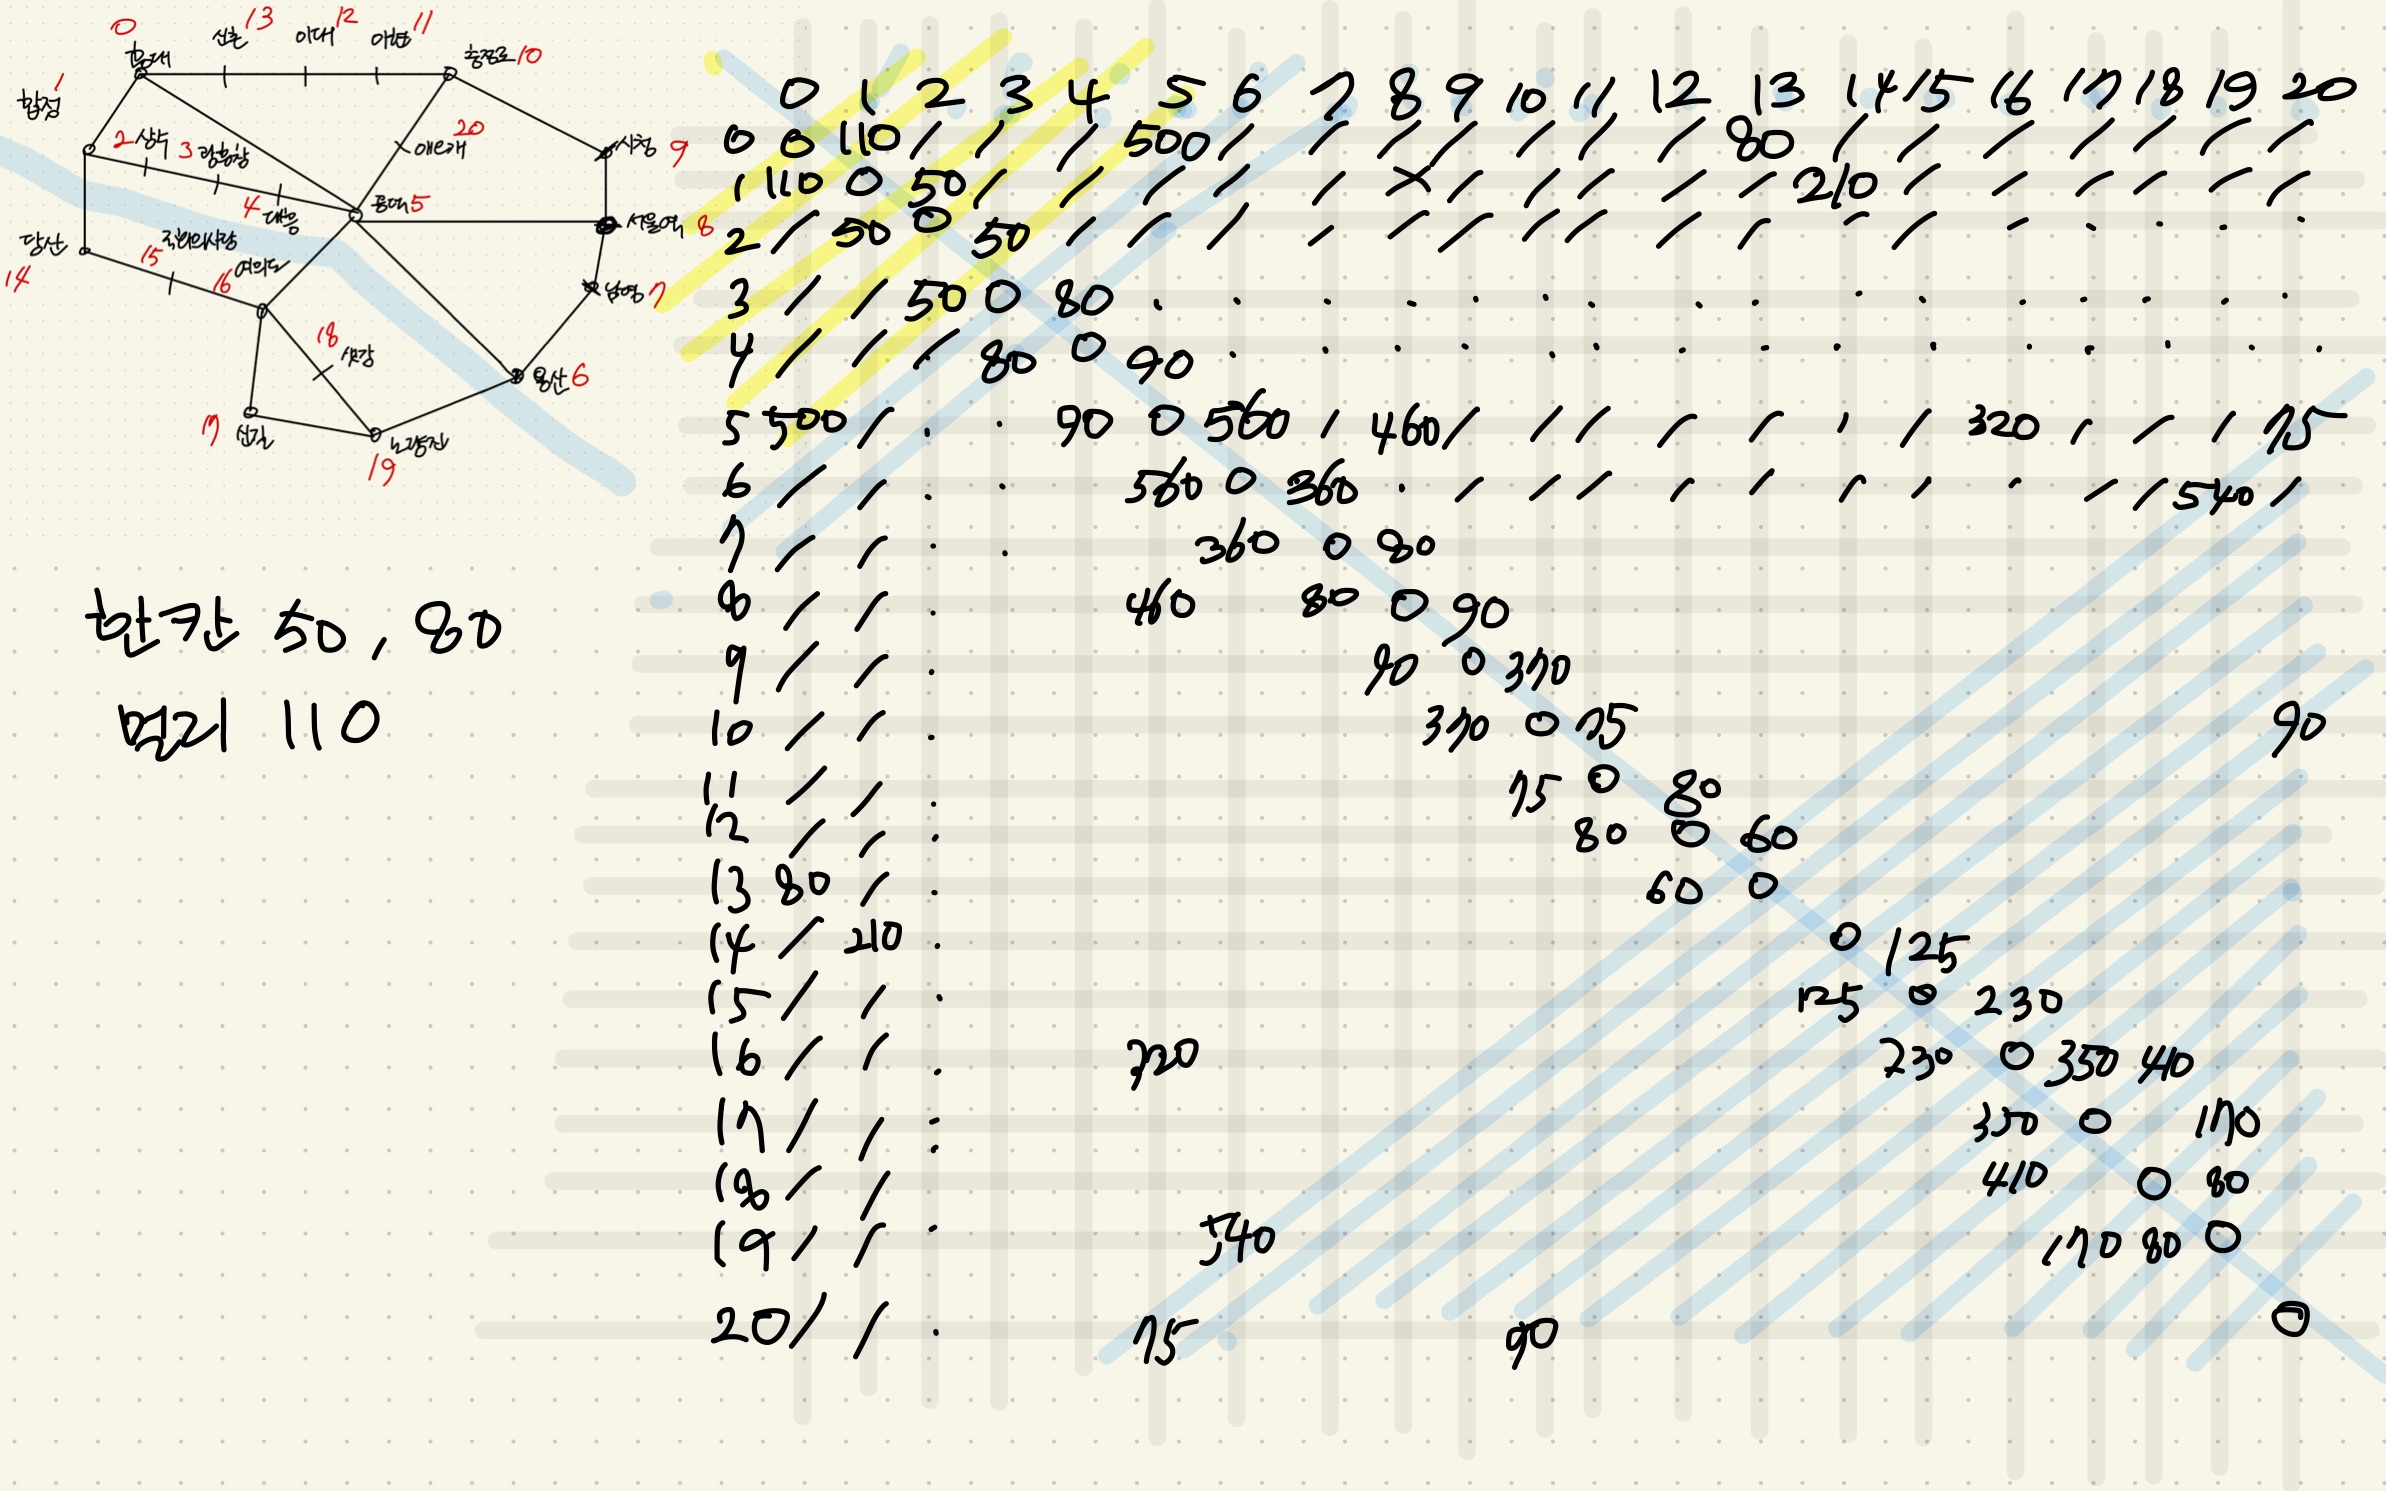 0 홍대 신촌 13 이대 12 아현 11 충정로 10
1 합정
2 상수 3 광흥창 애오개 20 시청 9
4 대흥 공덕 5 서울역 8
당산 14 15 국회의사당 16 여의도 남영 7
18 샛강 용산 6
17 신길 노량진 19
한칸 50, 80
멀리 110
0 1 2 3 4 5 6 7 8 9 10 11 12 13 14 15 16 17 18 19 20
0 0 110 / / / 500 / / / / / / / 80 / / / / / / /
1 110 0 50 / / / / / / / / / / / 210 / / / / / /
2 / 50 0 50 / / / / / / / / / / / / . . . . .
3 / / 50 0 80 . . . . . . . . . . . . . . . .
4 / / / 80 0 90 . . . . . . . . . . . . . . .
5 500 / . . 90 0 560 / 460 / / / / / / / 320 / / / 75
6 / / . . 560 0 360 . / / / / / / / . / / 540 /
7 / / . . 360 0 80
8 / / . 460 80 0 90
9 / / . 90 0 370
10 / / . 370 0 75 90
11 / / . 75 0 80
12 / / . 80 0 60
13 80 / . 60 0
14 / 210 . 0 125
15 / / . 125 0 230
16 / / . 320 230 0 350 410
17 / / . . 350 0 170
18 / / 410 0 80
19 / / . 540 170 80 0
20 / / . 75 90 0